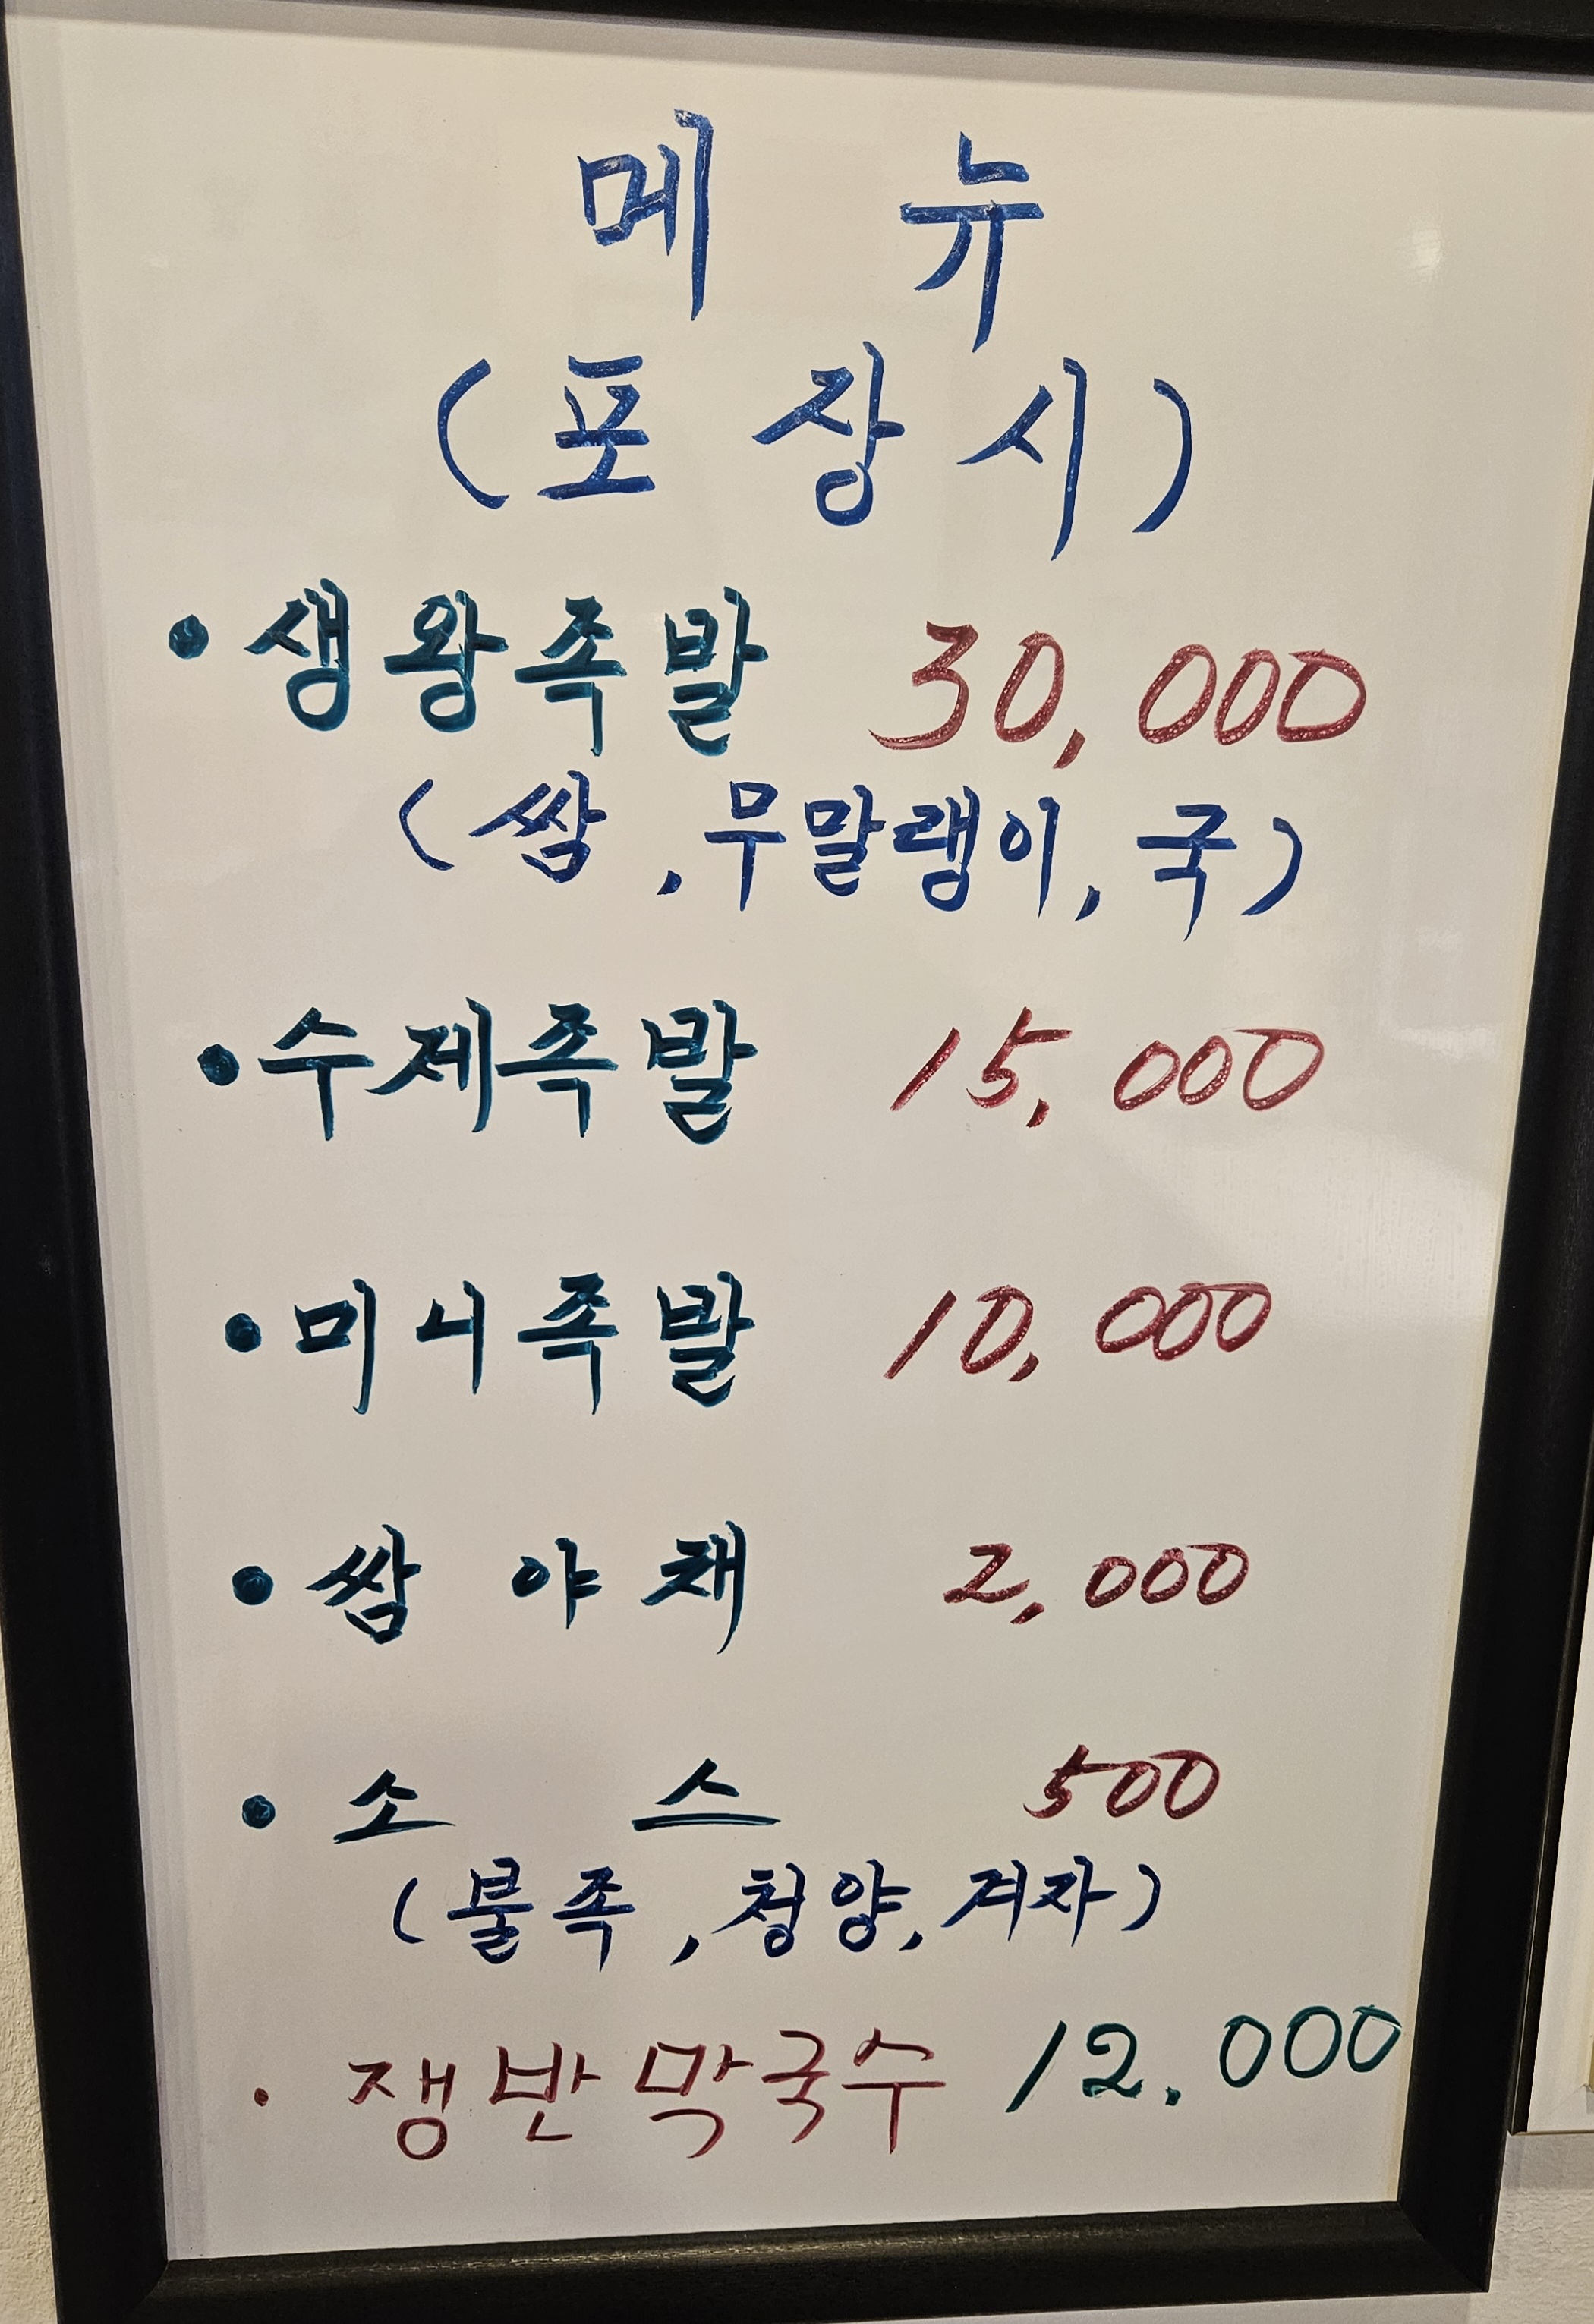 메 뉴
(포 장 시)
• 생왕족발 30,000
(쌈, 무말랭이, 국)
• 수제족발 15,000
• 미니족발 10,000
• 쌈 야채 2,000
• 소 스 500
(불족, 청양, 겨자)
• 쟁반막국수 12.000